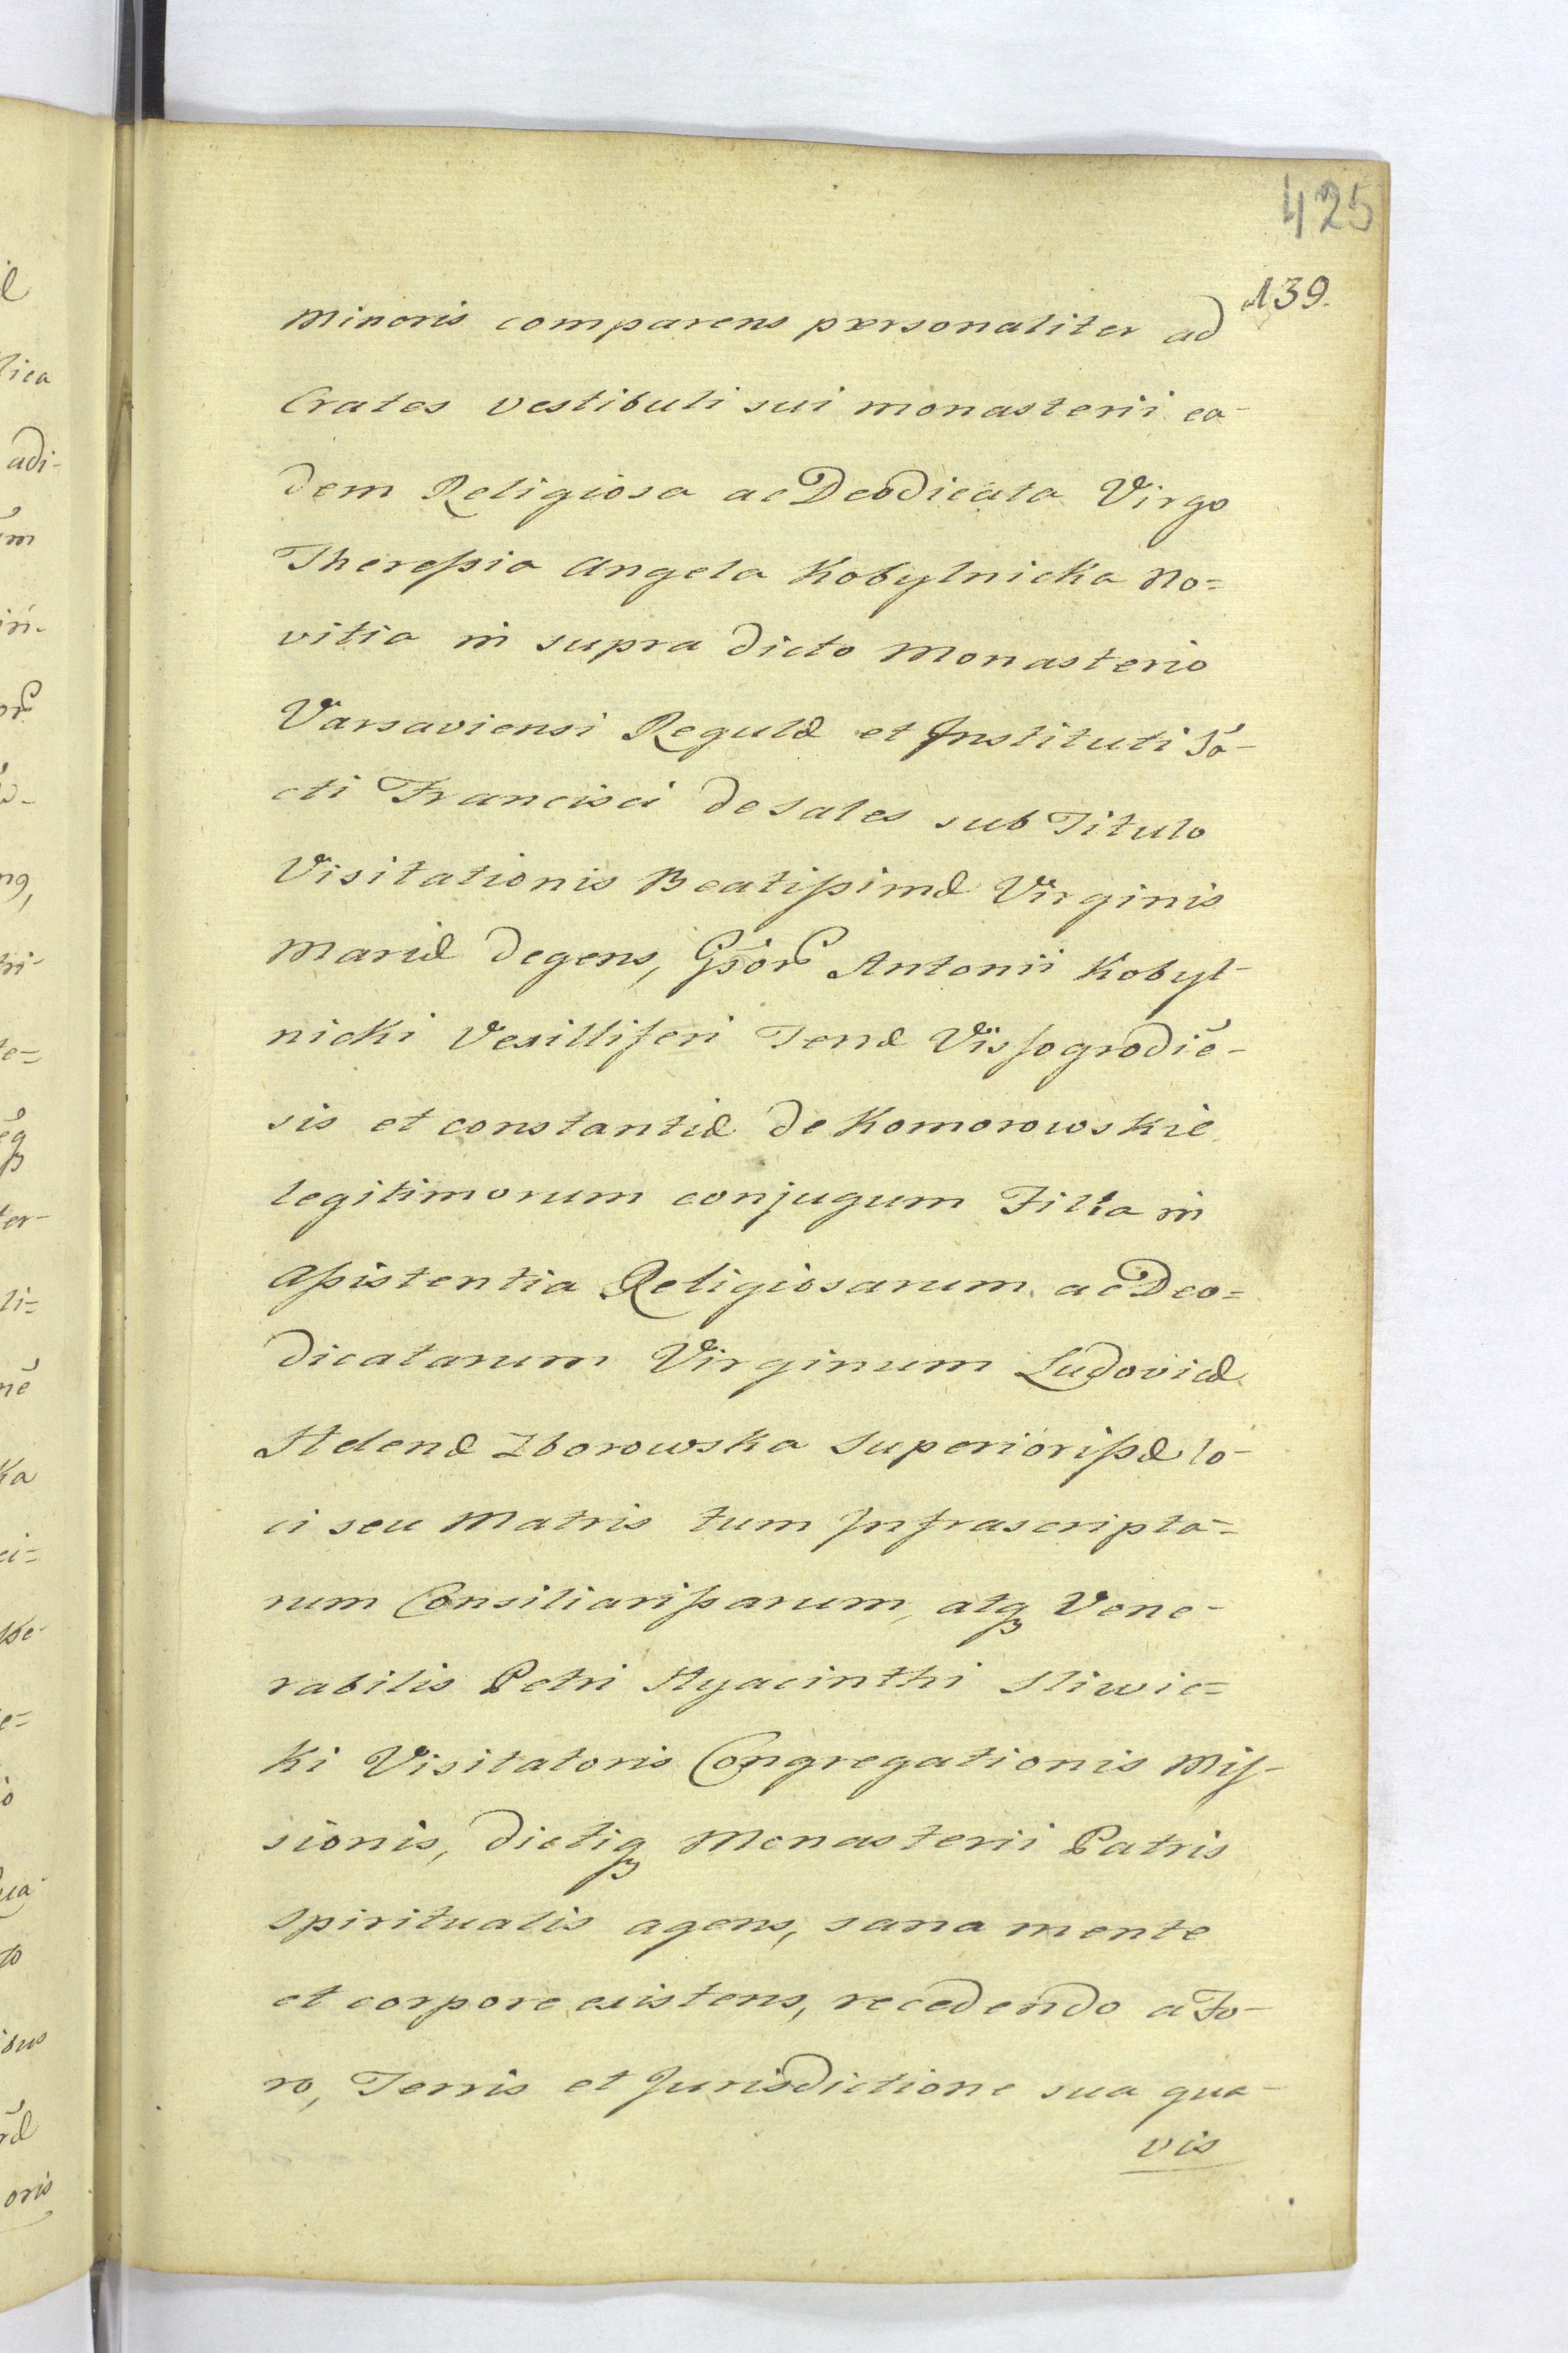 425
139.
Minoris comparens personaliter ad
Crates vestibuli sui monasterii ea-
dem Religiosa ac Deodicata Virgo
Theressia Angela Kobylnicka No=
vitia in supra dicto Monasterio
Varsaviensi Regulæ et Instituti Sā-
cti Francisci de Sales sub Titulo
Visitationis Beatissimæ Virginis
Mariæ degens, Gsōr Antonii Kobyl-
nicki Vexilliferi Terræ Vissogrodiē-
sis et constantiæ de Komorowskie
legitimorum conjugum Filia in
Assistentia Religiosarum ac Deo=
dicatarum Virginum Ludovicæ
Helenæ Zborowska Superiorissæ lo-
ci seu Matris tum Infrascripta=
rum Consiliarissarum, atq₃ Vene-
rabilis Petri Hyacinthi Sliwic=
ki Visitatoris Congregationis Mis-
sionis, dictiq₃ Monasterii Patris
Spiritualis agens, sana mente
et corpore existens, recedendo a Fo-
ro, Terris et Jurisdictione sua qua-
vis